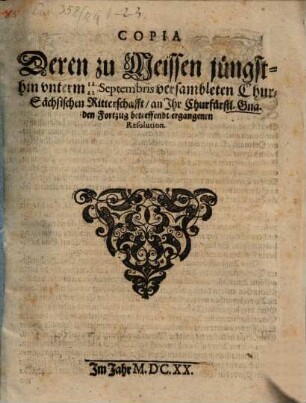 COPIA
Deren zu Meissen jüngst-
hin vnterm Septembris versambleten Chur-
Sächsischen Ritterschafft / an Ihr Churfürstl. Gna-
den Fortzug betreffendt ergangenen
Resolution.
Im Jahr M.DC.XX.